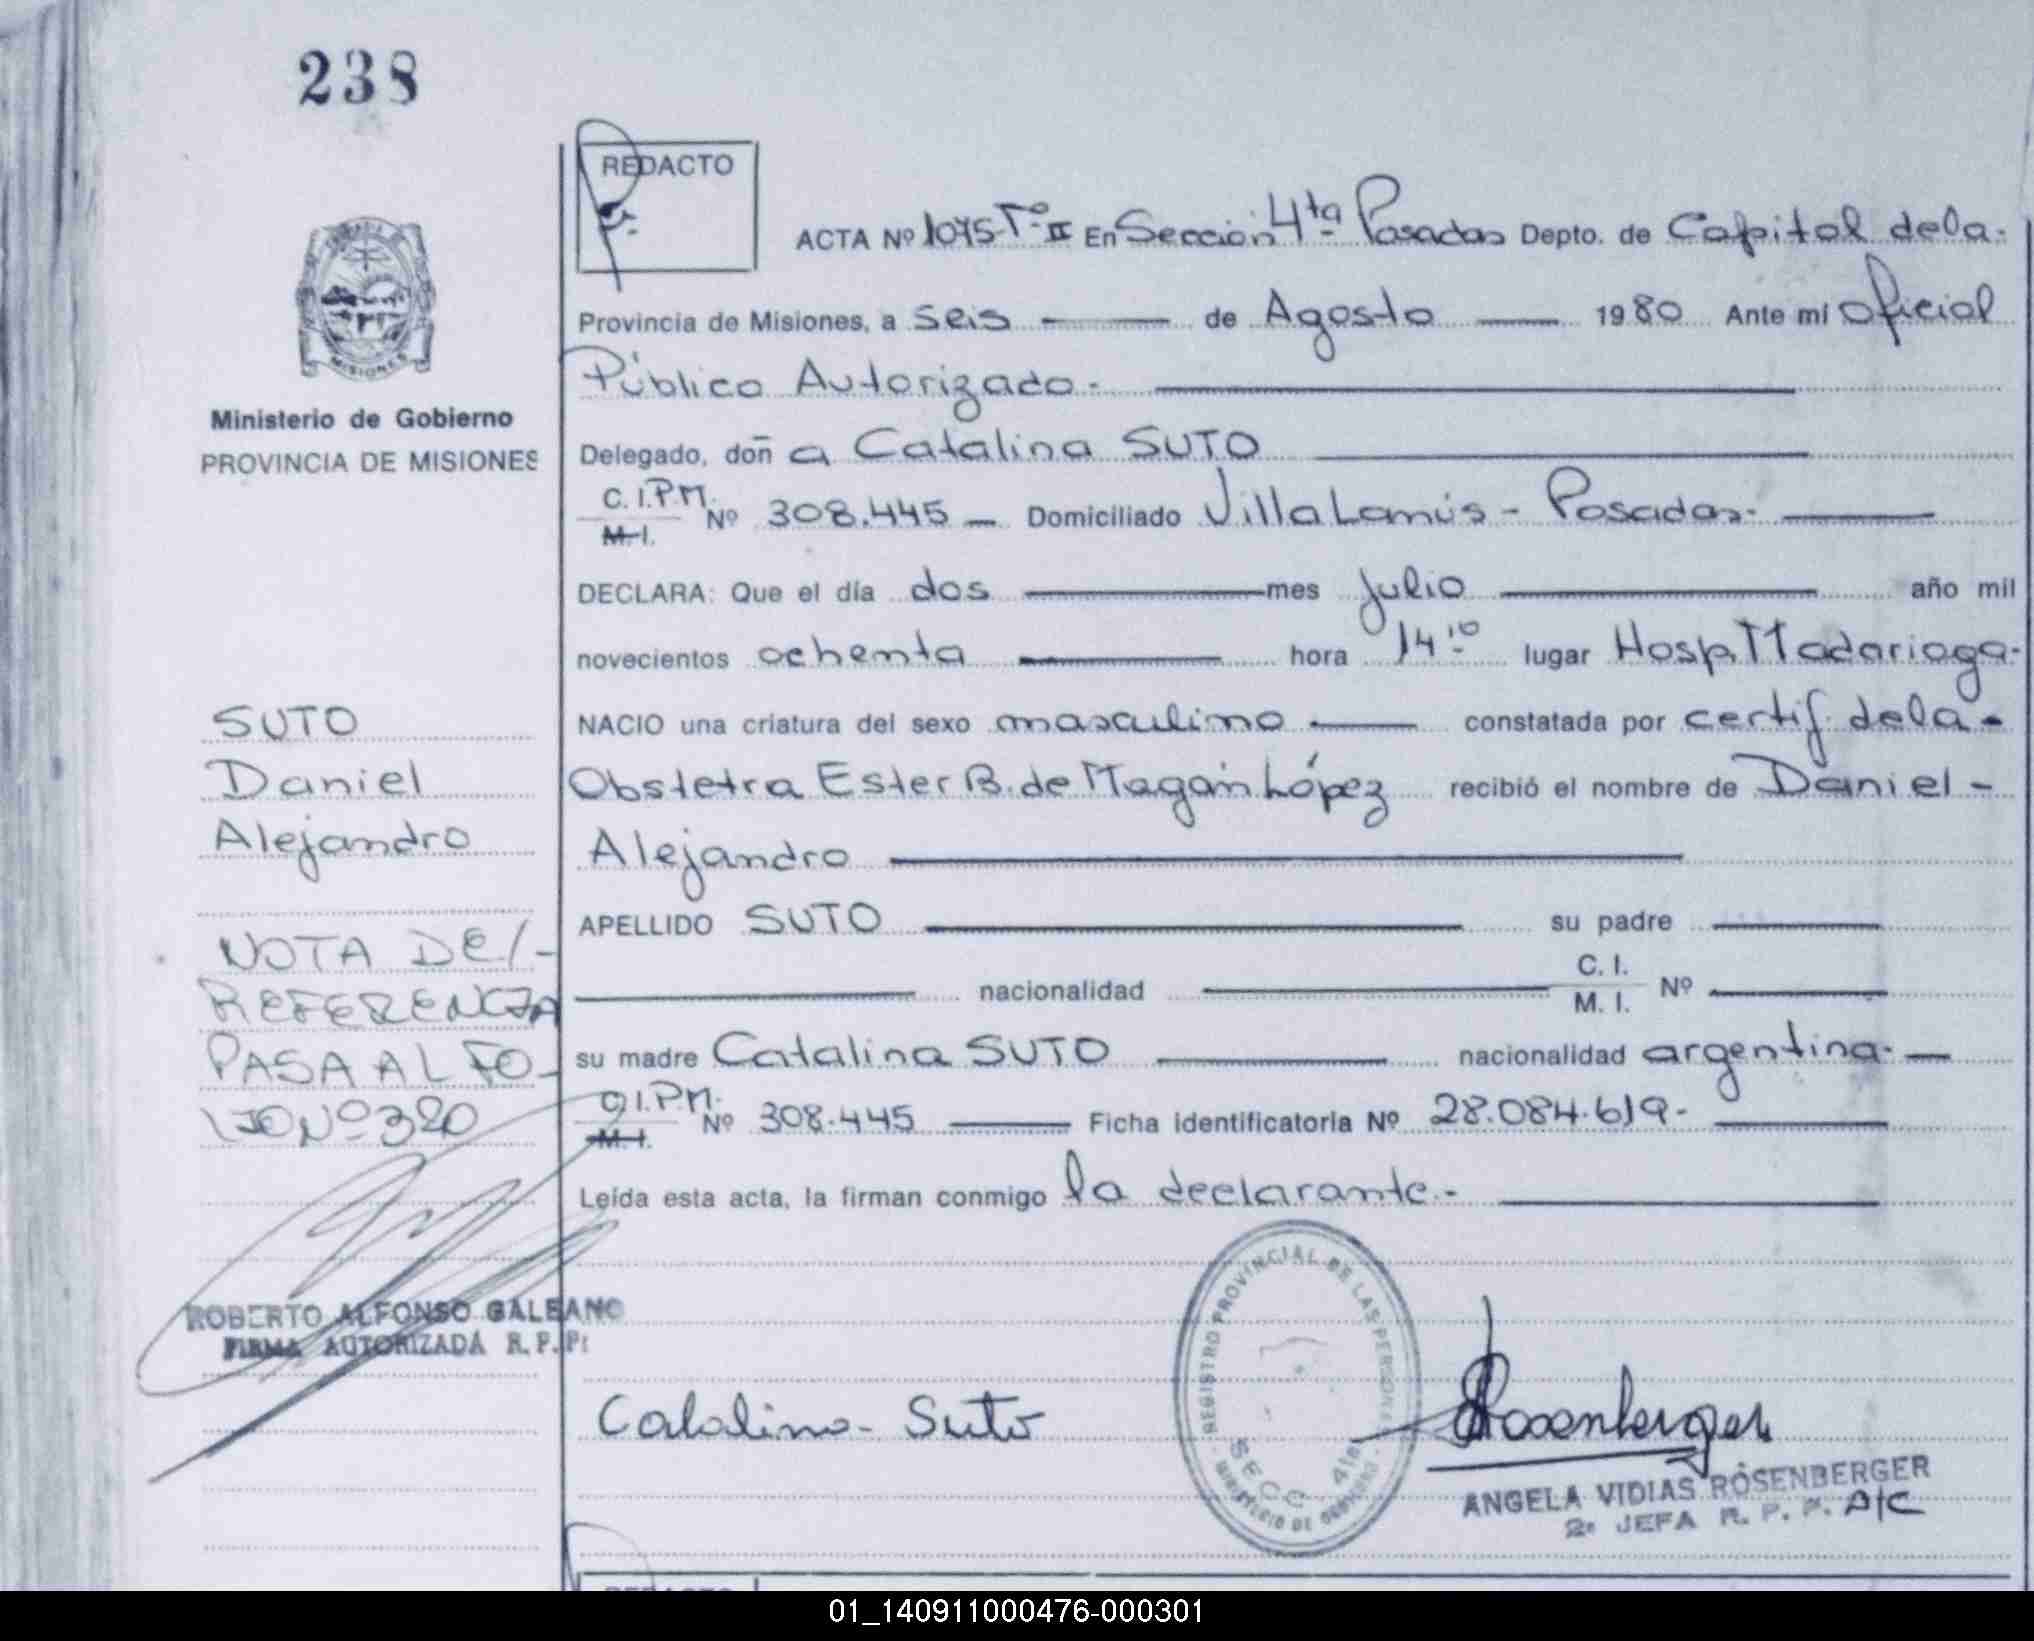 238
REDACTO
ACTA Nº 1075-Tº II En Sección 4ta Posadas Depto. de Capital de la.
Provincia de Misiones, a seis de Agosto 1980 Ante mí Oficial
Público Autorizado.
MISIONES
Ministerio de Gobierno
PROVINCIA DE MISIONES
Delegado, doñ a Catalina SUTO
C. I. P.M. M. I. Nº 308.445 Domiciliado Villa Lanús - Posadas.
DECLARA: Que el día dos mes julio año mil
novecientos ochenta hora 14.10 lugar Hosp. Madariaga.
NACIO una criatura del sexo masculino constatada por certif. de la
Obstetra Ester B. de Magán López recibió el nombre de Daniel -
Alejandro
APELLIDO SUTO su padre
nacionalidad C. I. M. I. Nº
su madre Catalina SUTO nacionalidad argentina.
C. I. P.M. M. I. Nº 308.445 Ficha identificatoria Nº 28.084.619.
Leída esta acta, la firman conmigo la declarante.-
SUTO
Daniel
Alejandro
NOTA DE/-
REFERENCIA
PASA AL FO-
LIO Nº 320
ROBERTO ALFONSO GALEANO
FIRMA AUTORIZADA R. P. P.
Catalina Suto
REGISTRO PROVINCIAL DE LAS PERSONAS
MINISTERIO DE GOBIERNO
SECC 4ta
Rosenberger
ANGELA VIDIAS ROSENBERGER
2º JEFA R. P. P. A/C
REDACTO
01_140911000476-000301